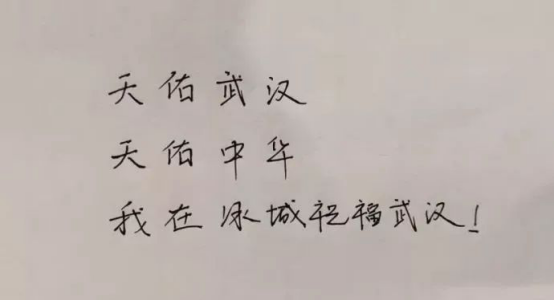 天佑武汉
天佑中华
我在冰城祝福武汉!